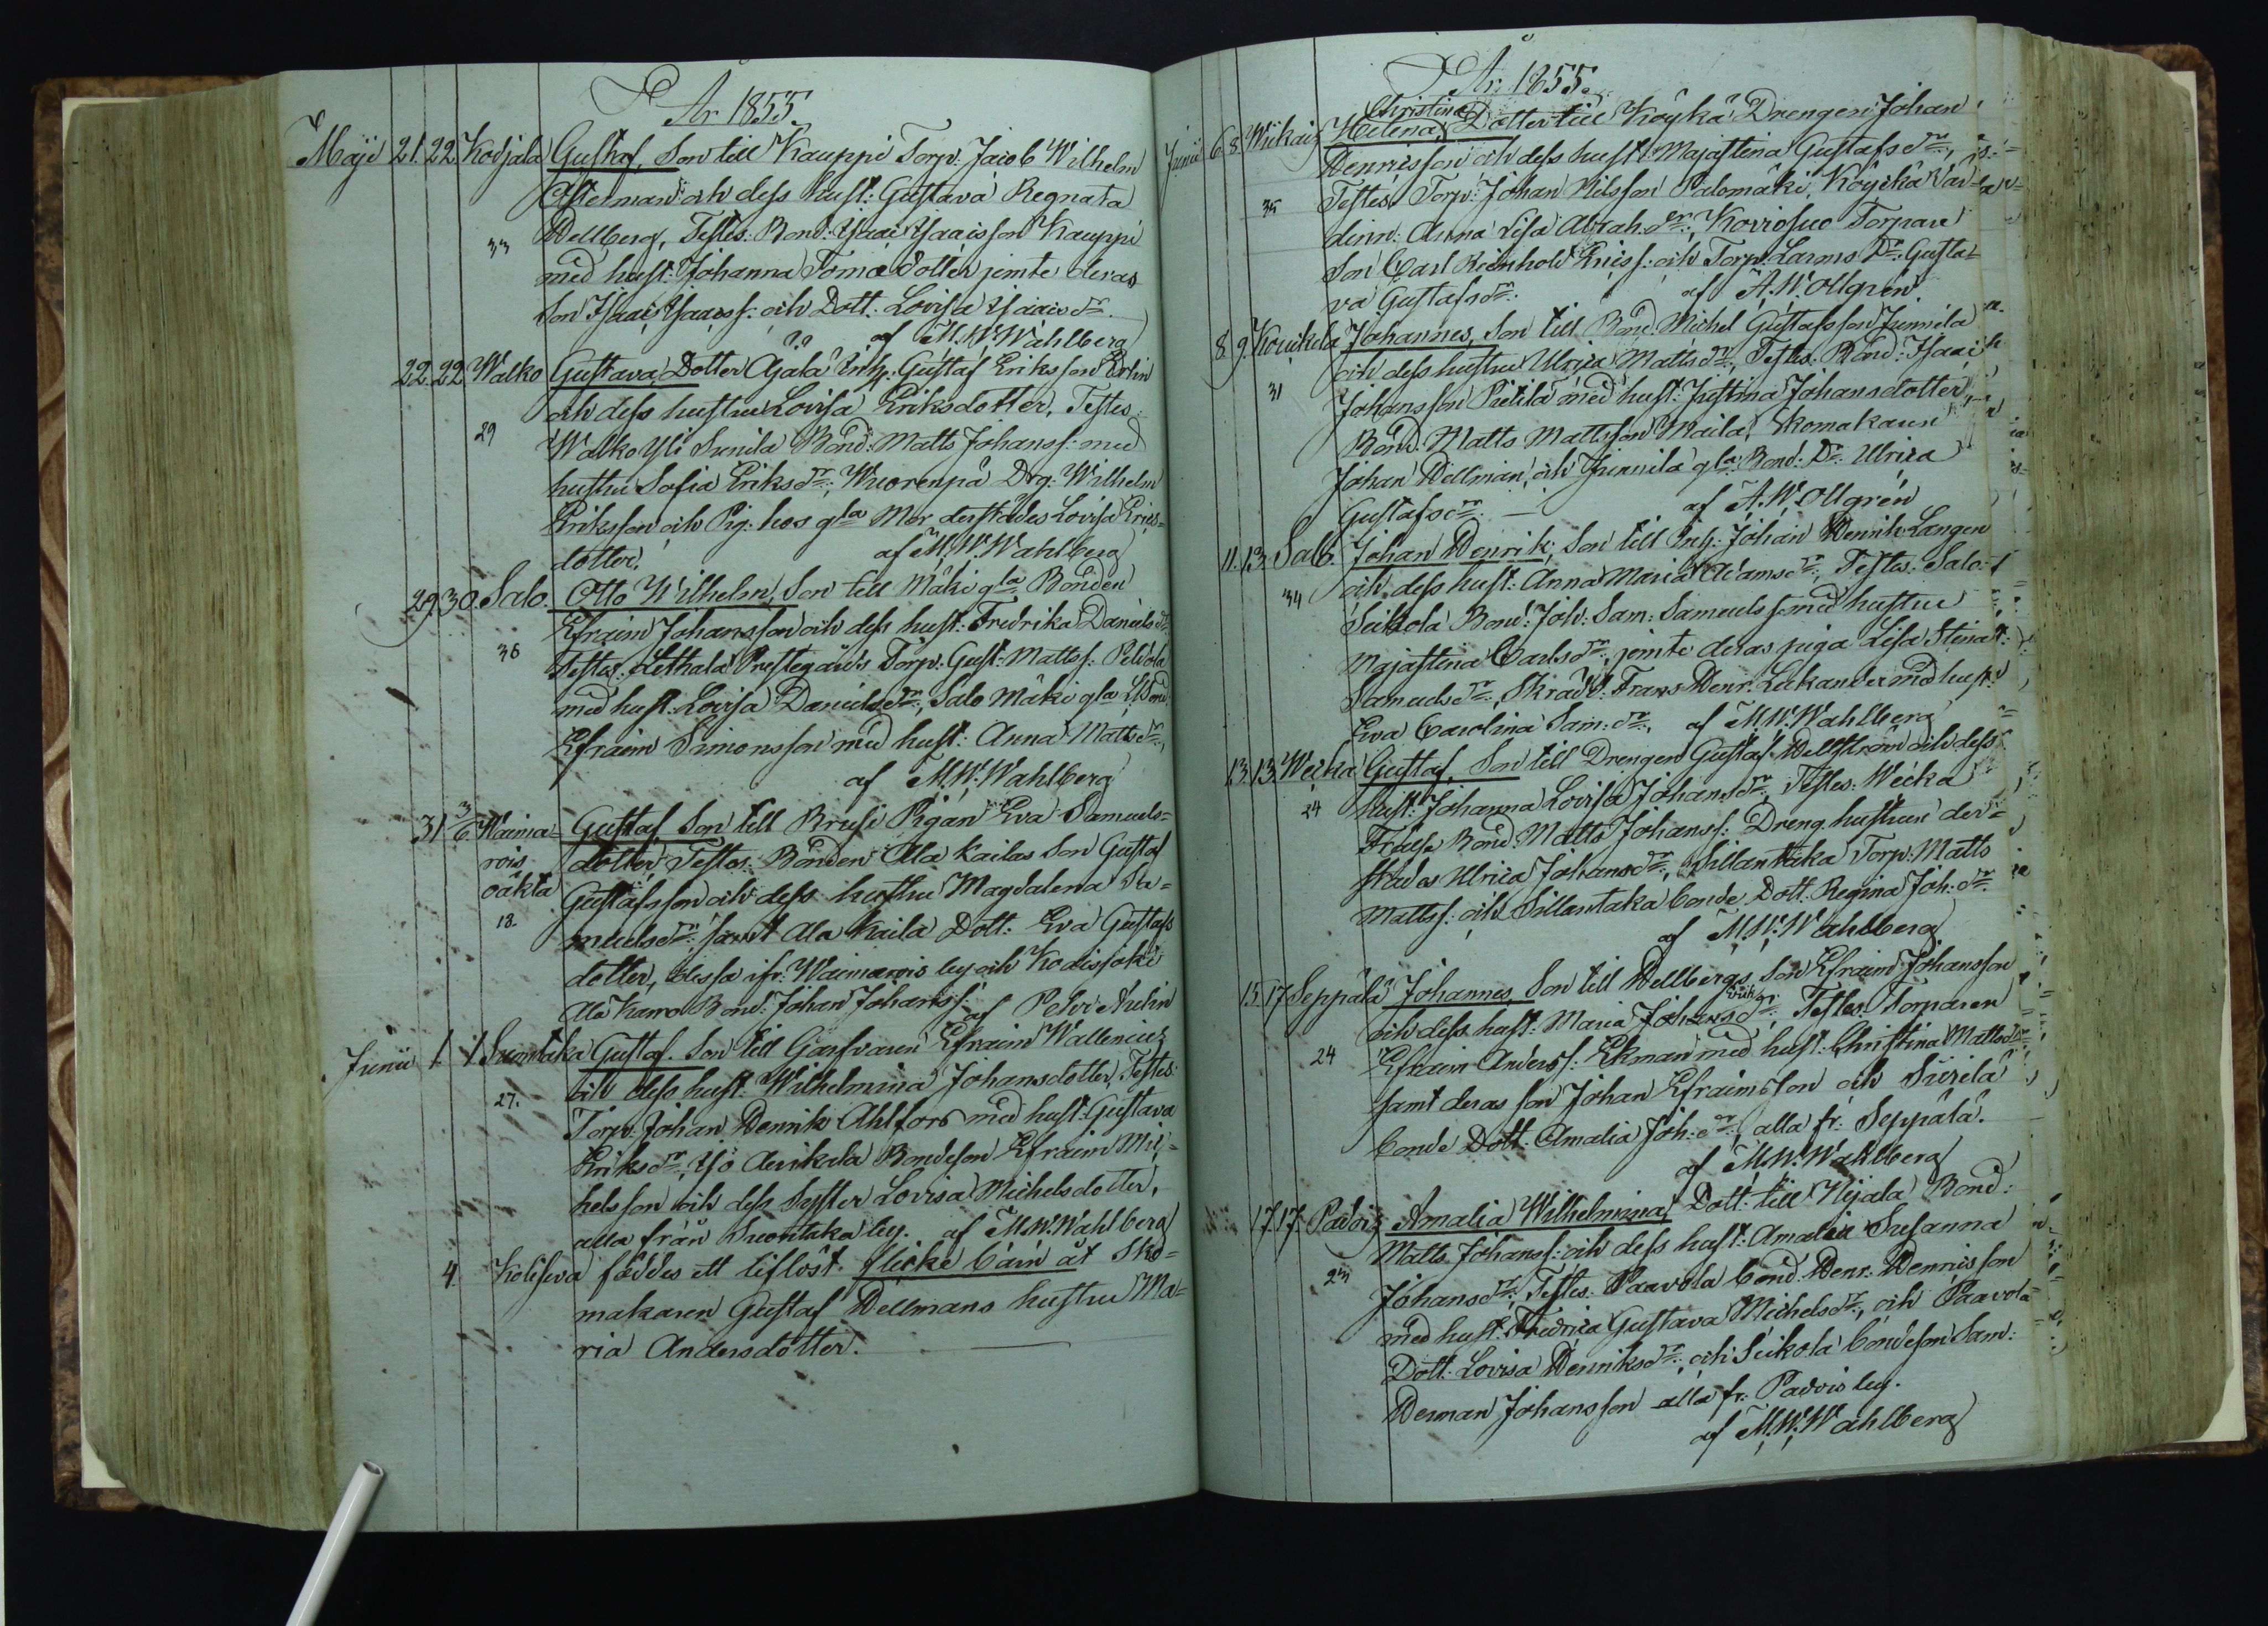 År 1855.
Maji 21. 22. Kodjala Gustaf, Son till Kauppi Torp: Jacob Wilhelm
Österman och dess hust: Gustava Regnata
33 Hellberg, Testes: Bond: Isaac Isaacsson Kauppi
med hust: Johanna Tomædotter jemte deras
Son Isaac Isaacss: och Dott: Lovisa Isaacs dr.
af M.W. Wahlberg
22. 22. Walko Gustava, Dotter Äjälä Inh: Gustaf Eriksson Erlin
och dess hustru Lovisa Eriksdotter, Testes:
29 Walko Yli Sunila Bond: Matts Johanss: med
hustru Sofia Eriks dr:, Wuorenpä Drg: Wilhelm
Eriksson och Pig: hos gla Mor derstädes Lovisa Erics=
dotter. af M.W. Wahlberg
29. 30. Salo. Otto Wilhelm, Son till Mäki gla Bonden
Efraim Johansson och dess hust: Fredrika Daniels dr:
36 Testes: Lethala Prestegårds Torp: Gust: Mattss: Peldola
med hust: Lovisa Daniels dr:, Salo Mäki gla Bond:
Efraim Simonsson med hust: Anna Matts dr:,
af M.W. Wahlberg
31 3/6 Waima= Gustaf Son till Prusi Pigan Eva Samuels=
rois dotter, Testes: Bonden Ala Kailas Son Gustaf
oäkta Gustafsson och dess hustru Magdalena Sa=
18. muels dr: samt Ala Kaila Dott: Eva Gustafs
dotter, dessa ifr: Waimarois by och Kodisjoki
Ala Karro Bond: Johan Johanss: af Petr: Aulin
Junii 1. 1. Suontaka Gustaf. Son till Garfvaren Efraim Wallenius
och dess hust: Wilhelmina Johansdotter, Testes:
27. Torp: Johan Henrik Ahlfors med hust: Gustava
Eriks dr:, Iso Anikala Bondeson Efraim Mic=
helsson och dess Syster Lovisa Michelsdotter,
alla från Suontaka by. af M.W. Wahlberg
4. Koliseva föddes ett liflöst flicke barn åt Sko=
makaren Gustaf Hellmans hustru Ma=
ria Andersdotter.
År 1855.
Christina
Junii 6. 8. Wiikais Helena, Dotter till Köykä Drengen Johan
Henricsson och dess hust: Majastina Gustafs dr:,
35 Testes: Torp: Johan Nilsson Palomäki, Köykä Vär=
dinn: Anna Lisa Abrah: dr:, Korriosuo Torpare
Son Carl Reinhold Erics: och Torp: Larms Dr: Gusta=
va Gustafs dr: af A.W. Ollgren
8. 9. Koukela Johannes, Son till Bond: Michel Gustafsson Junnila
och dess hustru Ulrica Matts dr:, Testes: Bond: Isaac
31 Johansson Pietilä med hust: Justina Johansdotter,
Bond: Matts Mattsson Maila, Skomakaren
Johan Hellman, och Junnila gla Bond: Dr: Ulrica
Gustafs dr: af A.W. Ollgren
11. 13. Salo. Johan Henrik, Son till Inh: Johan Henrik Langen
och dess hust: Anna Maria Adams dr:, Testes: Salo
34 Seikola Bond: Joh: Sam: Samuelss: med hustru
Majastina Carls dr:, jemte deras piga Lisa Stina
Samuels dr:, Skräd: Frans Henr: Lukander med hust:
Eva Carolina Sam: dr:, af M.W. Wahlberg
13. 13. Weckä Gustaf, Son till Drengen Gustaf Hellström och dess
24 hust: Johanna Lovisa Johans dr:, Testes: Weckä
Bond: Matts Johanss: Dreng hustrun der=
städes Ulrica Johans dr:, Sillantaka Torp: Matts
Mattss: och Sillantaka bonde Dott: Regina Joh: dr:
af M.W. Wahlberg
15. 17. Seppälä Johannes, Son till Hellbergs Son Efraim Johansson
och dess hust: Maria Johans dr:, Testes: Torparen
24 Efraim Anderss: Ekman med hust: Christina Matts dr:
samt deras son Johan Efraimsson och Siirilä
bonde Dott: Amalia Joh: dr:, alla fr: Seppälä.
af M.W. Wahlberg
17. 17. Padois Amalia Wilhelmina, Dott: till Nijala Bond:
Matts Johanss: och dess hust: Amalia Susanna
23 Johans dr:, Testes: Paavola bond: Henr: Henricsson
med hust: Fredrica Gustava Michels dr:, och Paavola
Dott: Lovisa Henriks dr:, och Seikola bondeson Sam:
Herman Johansson alla fr: Padois by.
af M.W. Wahlberg